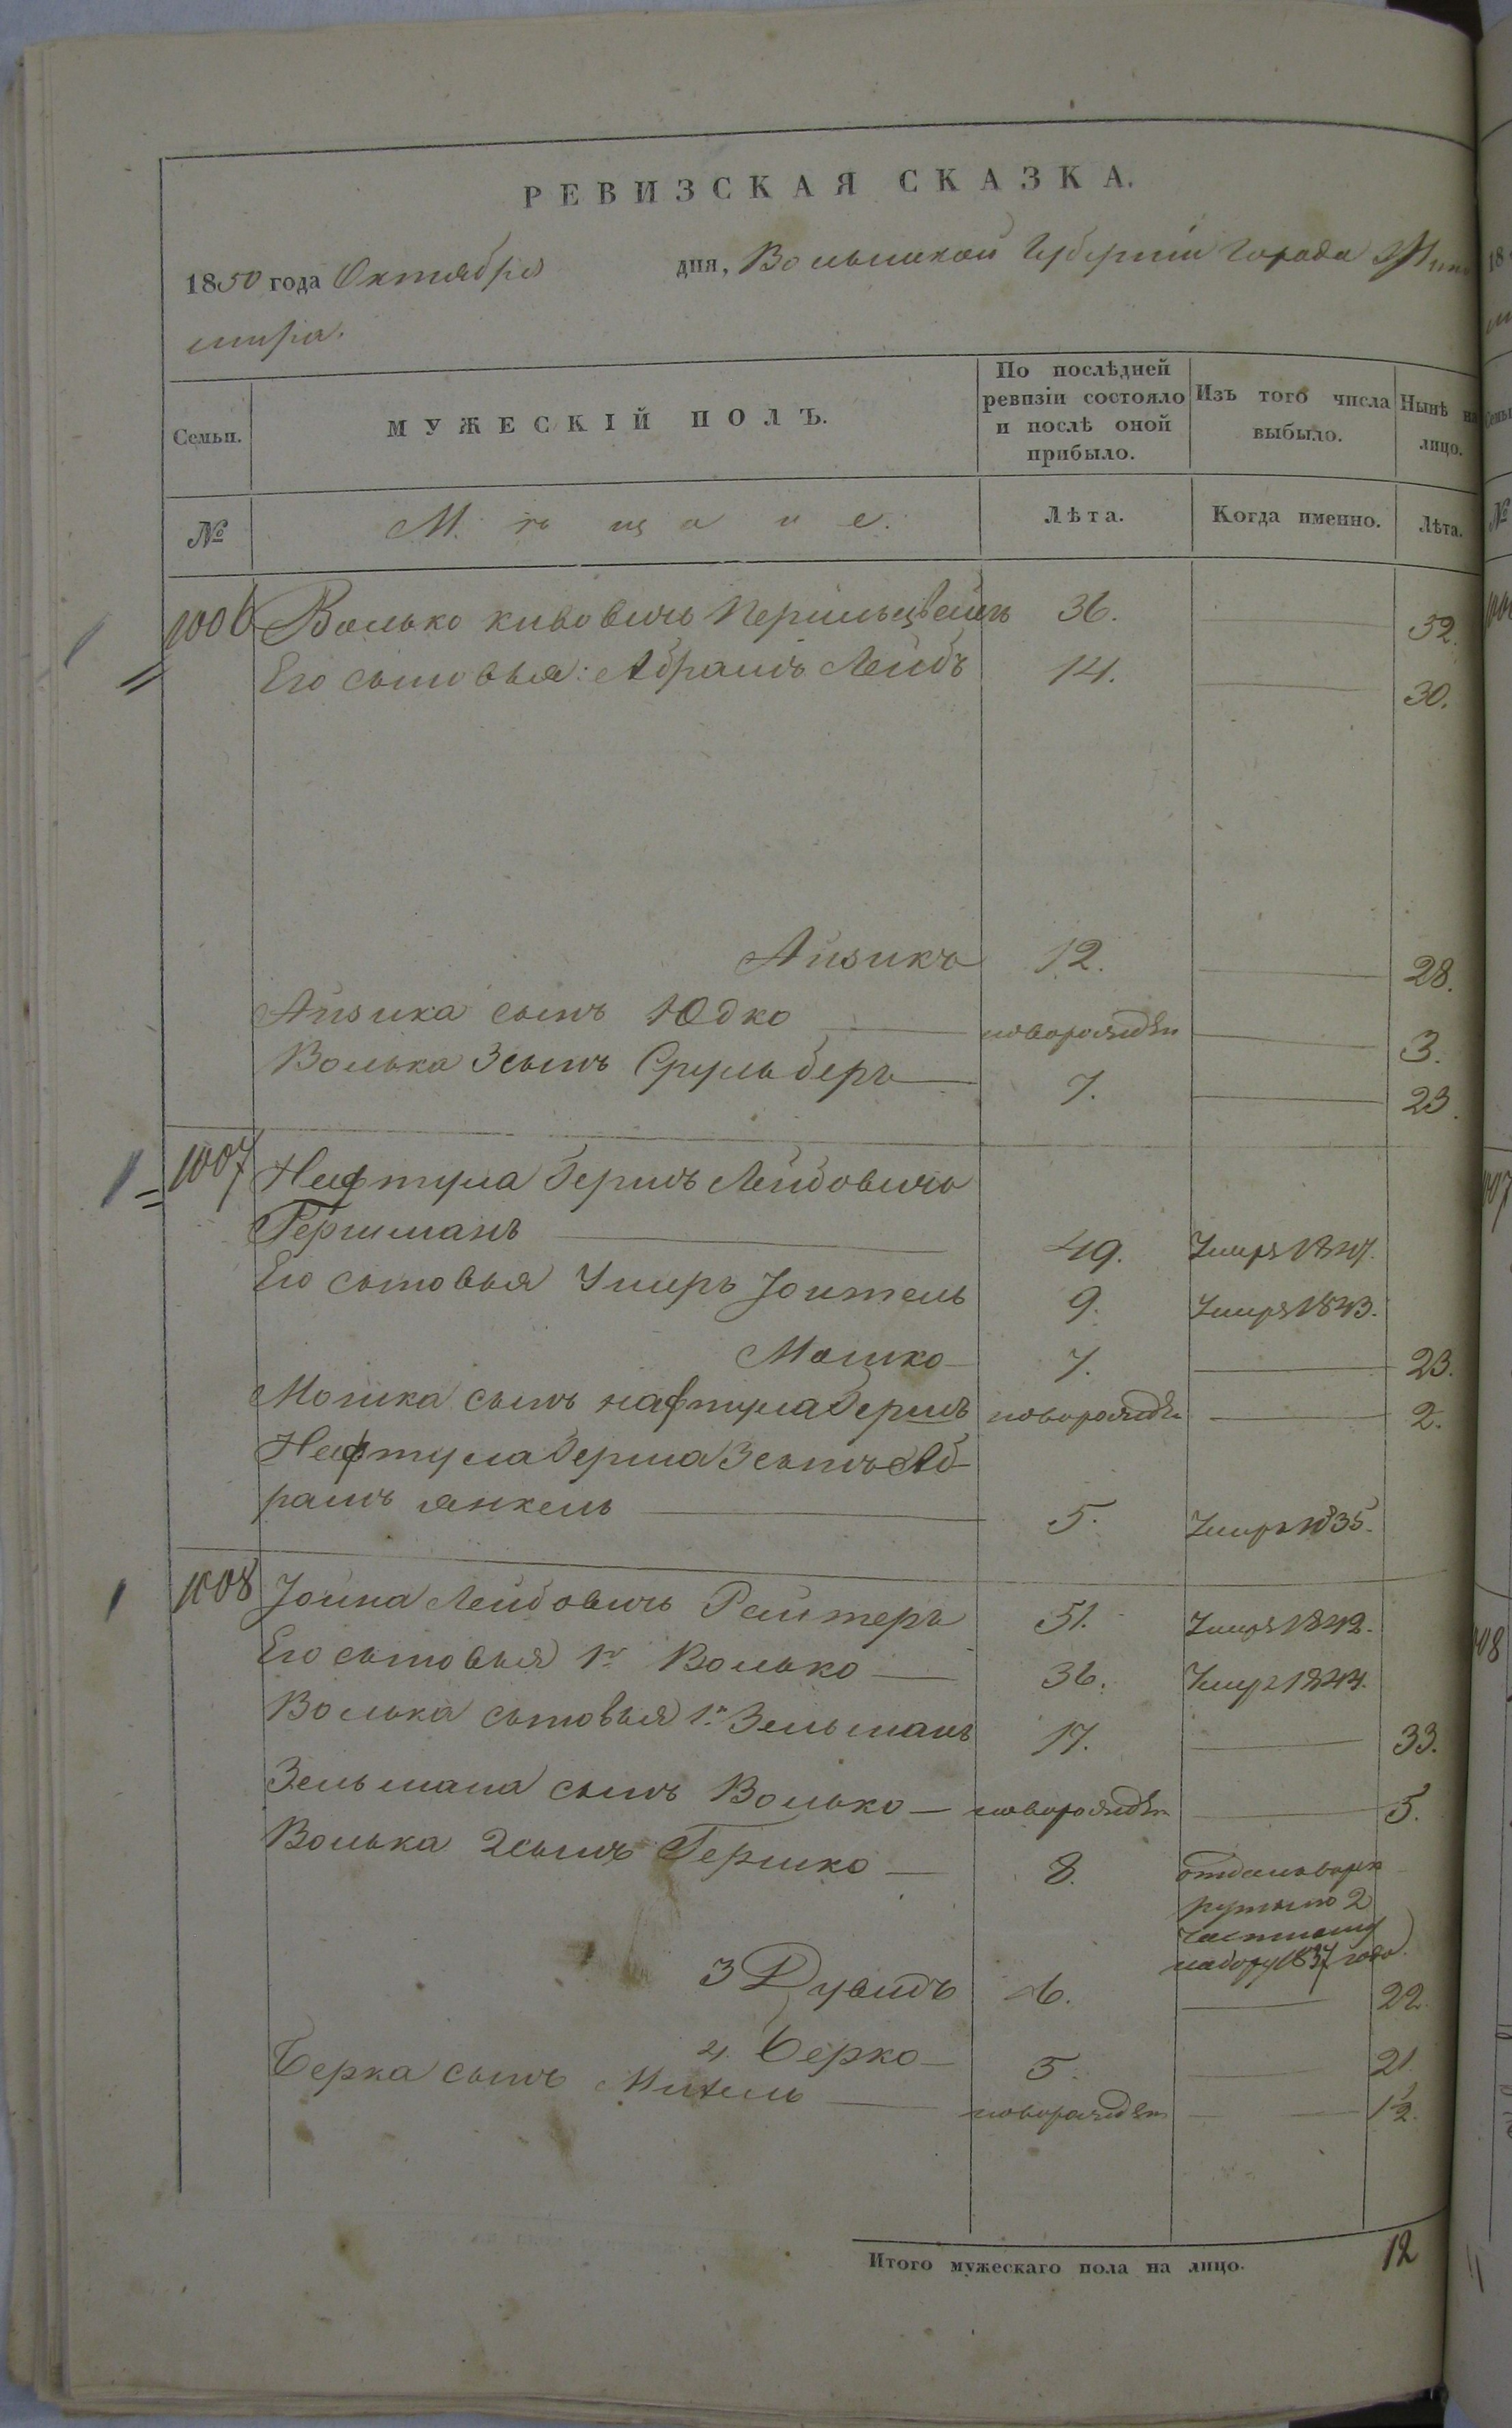 РЕВИЗСКАЯ СКАЗКА.
1850 года Октября дня, Волынской Губерніи Города Жи
мира.
Семьи.
МУЖЕСКІЙ ПОЛЪ.
По послѣдней ревизіи состояло и послѣ оной прибыло.
Изъ того числа выбыло.
Нынѣ на лицо.
№ Мѣщане. Лѣта. Когда именно. Лѣта.
1006 Волько Кивовичъ Перильцвейгъ 36. 52.
Его сыновья: Абрамъ Лейбъ 14. 30.
Айзикъ 12. 28.
Айзика сынъ Юдко новорожден 3.
Волька 3 сынъ Сруль беръ 7. 23.
1007 Нафтула Гершъ Лейбовичъ
Гершманъ 49. Умеръ 1847.
Его сыновья Умеръ Іоитель 9. Умеръ 1843.
Мошко 7. 23.
Мошка сынъ нафтула Гершъ новорожден 2.
Нафтула Герша 3 сынъ Аб
рамъ янкель 5. Умеръ 1835.
1008 Іойна Лейбовичъ Рейтеръ 51. Умеръ 1842.
Его сыновья 1й Волько 36. Умеръ 1844.
Волька сыновья 1й Зельманъ 17. 33.
Зельмана сынъ Волько новорожден 5.
Волька 2 сынъ Гершко 8. отданъ в рек
руты по 2
частному
набору 1837 года.
3 Дувидъ 6. 22.
4. Берко 5. 21.
Берка сынъ Михель новорожден 1/2.
Итого мужескаго пола на лицо. 12